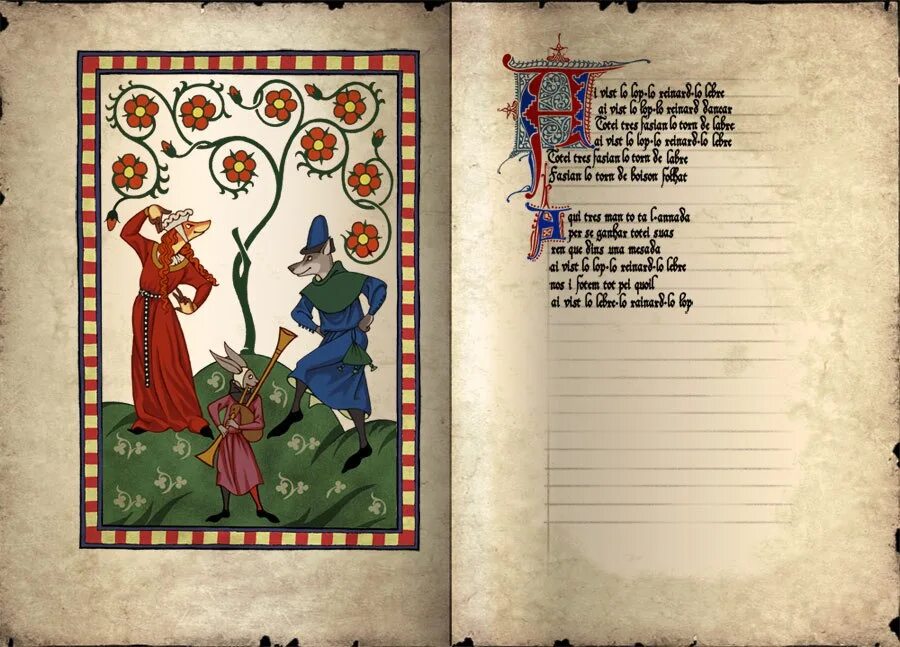 Ai vist lo lop-lo reinard-lo lebre
ai vist lo lop-lo reinard dancar
Totei tres fasian lo torn de labre
ai vist lo lop-lo reinard-lo lebre
Totei tres fasian lo torn de labre
Fasian lo torn de boison folhat
Aqui tres man to ta l-annada
per se ganhar totei suas
ren que dins una mesada
ai vist lo lop-lo reinard-lo lebre
nos i fotem tot pei quoil
ai vist lo lebre-lo rainard-lo lop